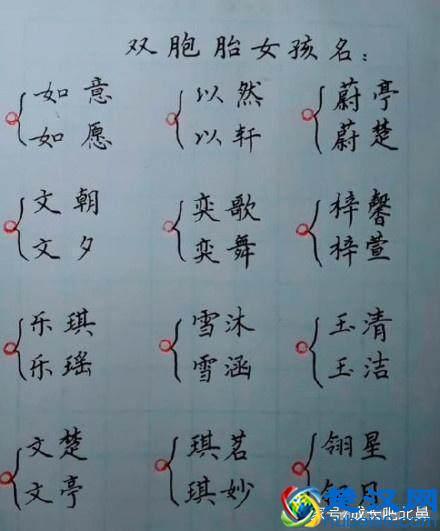 双胞胎女孩名：
如意 以然 蔚亭
如愿 以轩 蔚楚
文朝 奕歌 梓馨
文夕 奕舞 梓萱
乐琪 雪沐 玉清
乐瑶 雪涵 玉洁
文楚 琪茗 翎星
文亭 琪妙
楚汉网